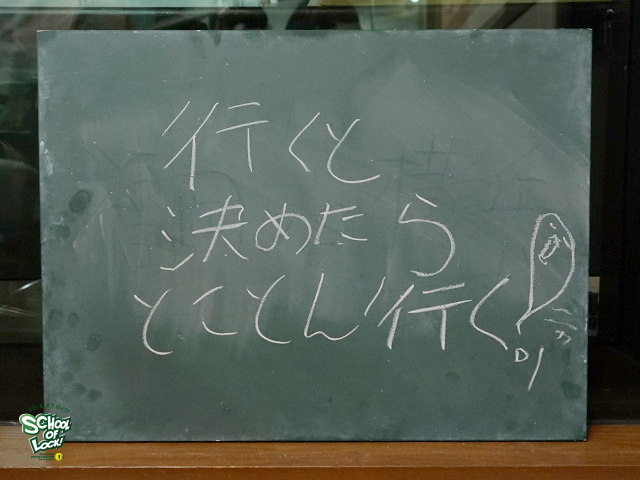 行くと
決めたら
とことん行く
SCHOOL
OF
LOCK!